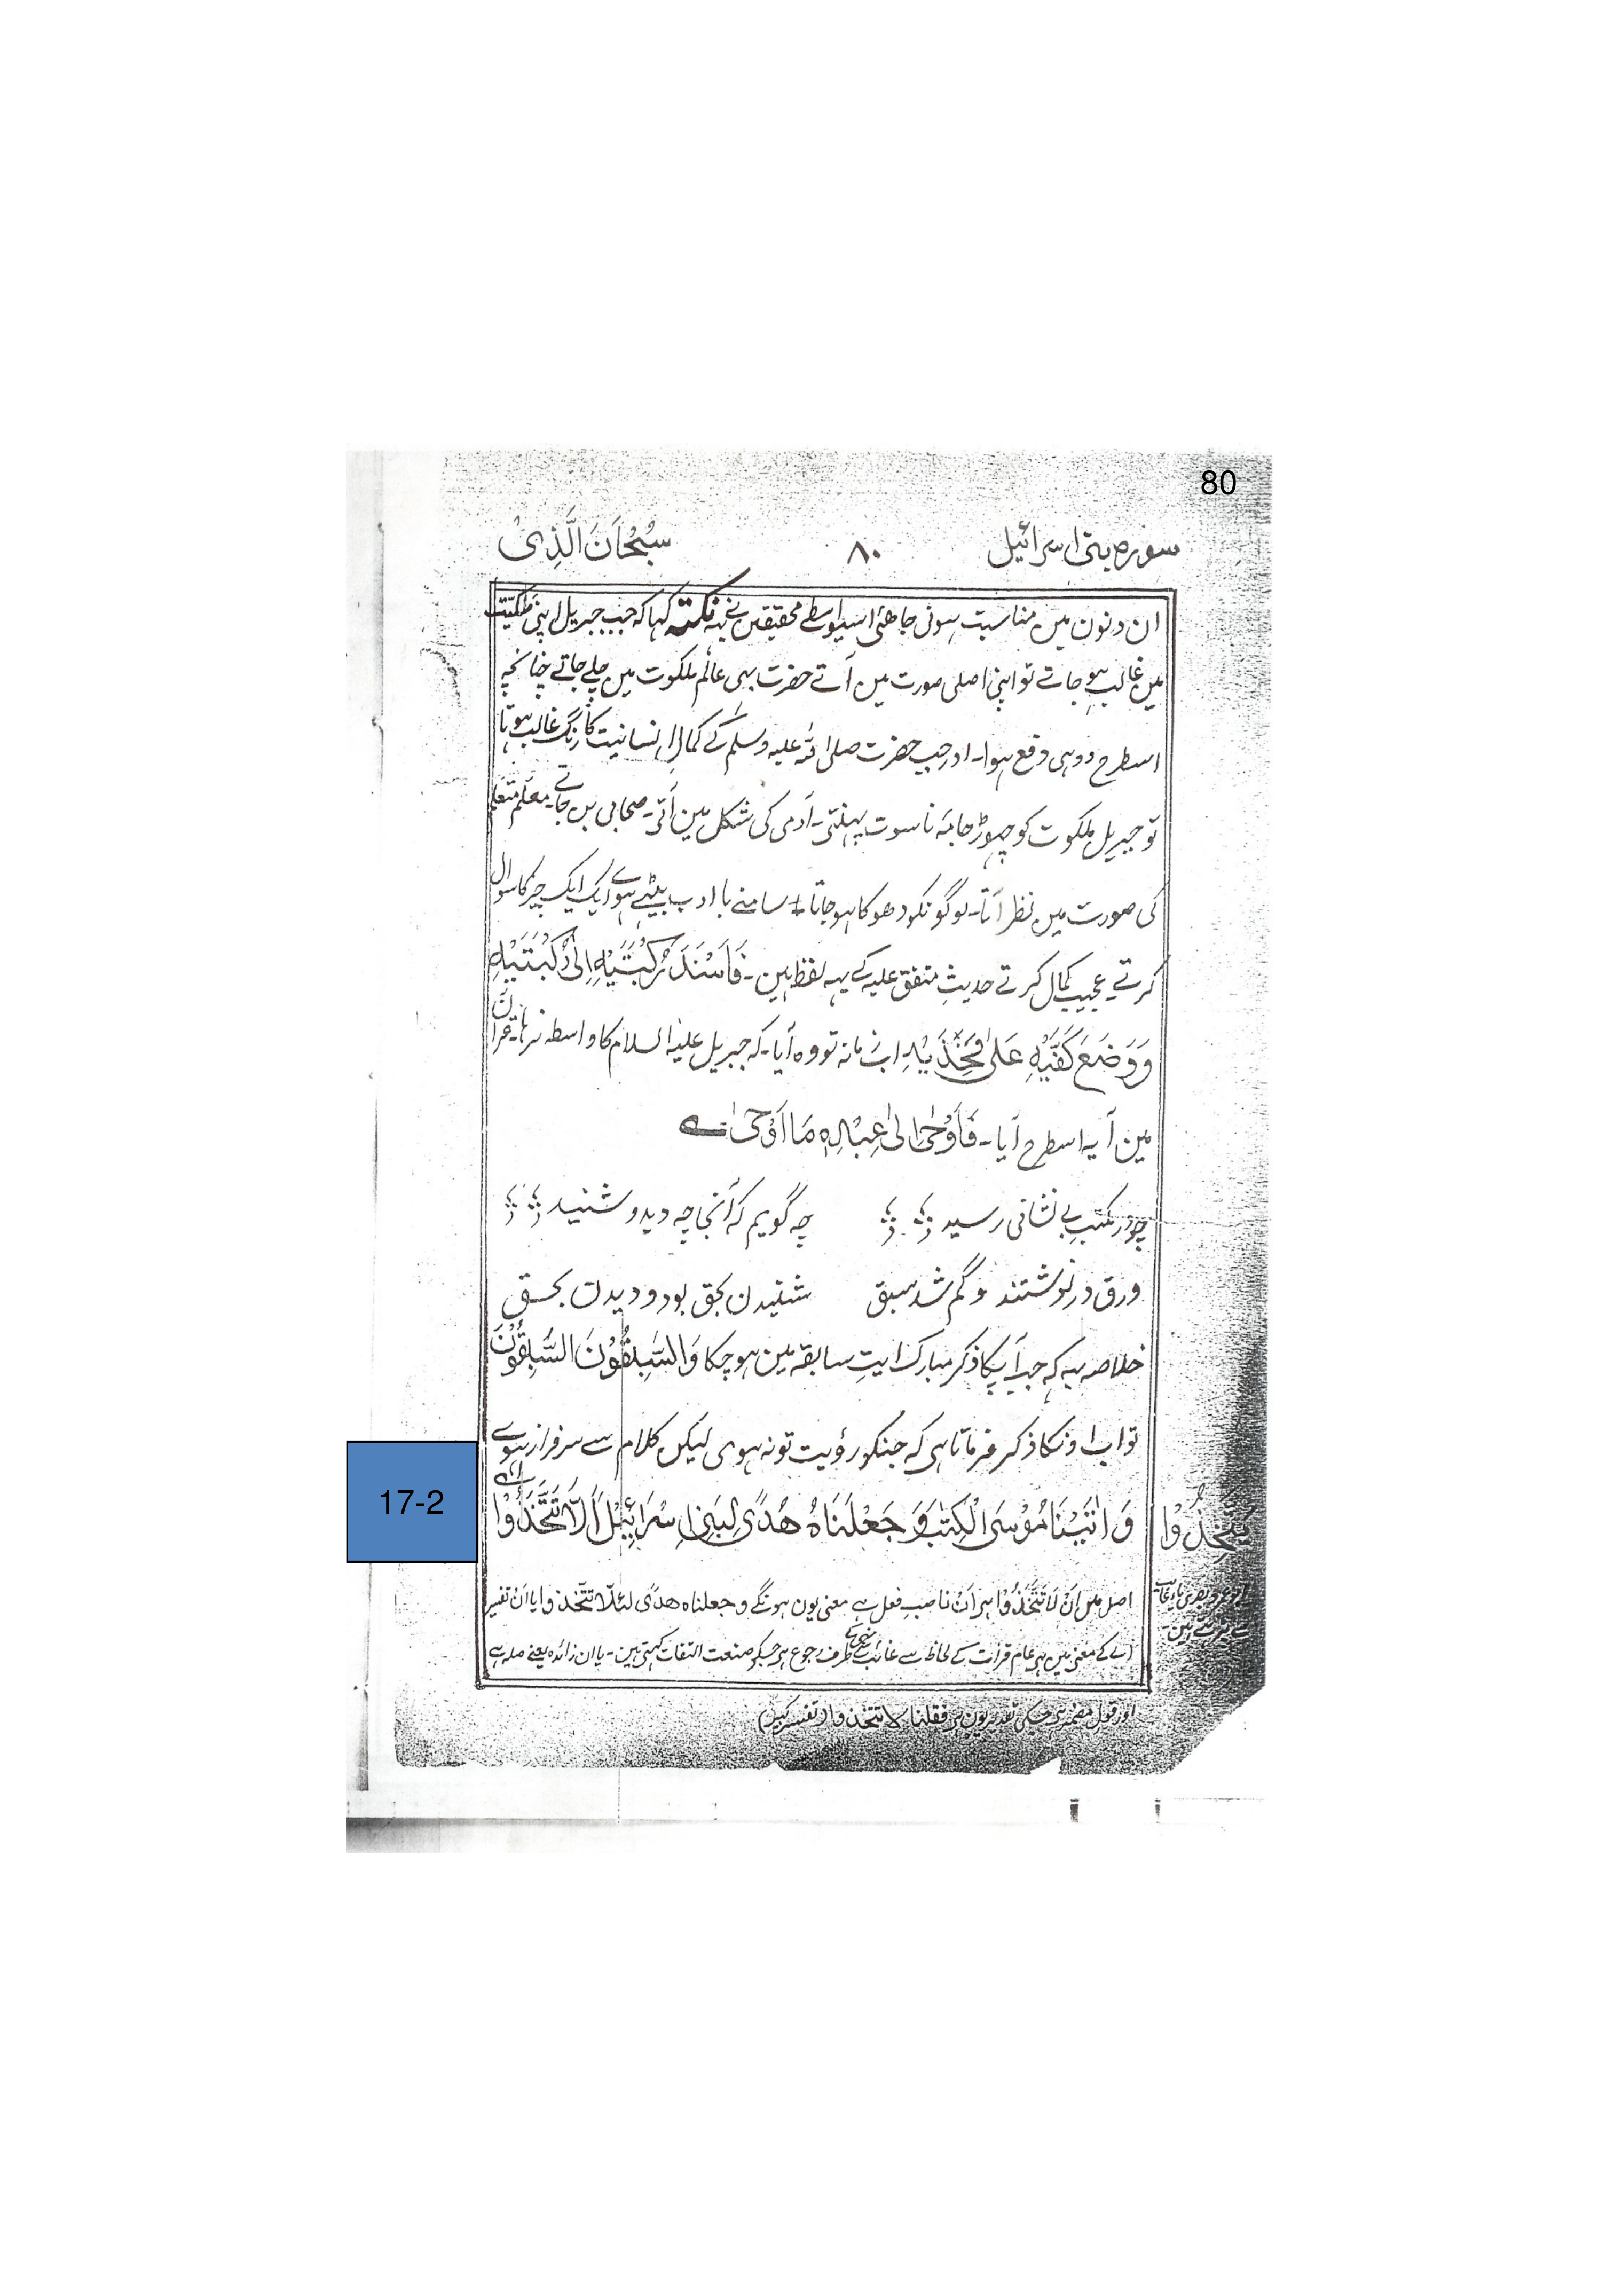 80
سورہ بنی اسرائیل ۸۰ سُبْحَانَ الَّذِیْ
ان دونون مین مناسبت ہونی چاھئی اسیواسطے محققین نے یہ نکتہ کہا کہ جب جبریل اپنی ملکیّت
مین غالب ہو جاتے تو اپنی اصلی صورت مین آتے حضرت بہی عالم ملکوت مین چلے جاتے چنانچہ
اسطرح دو ہی دفع ہوا۔ اور جب حضرت صلی اللہ علیہ وسلم کے کمالِ انسانیت کا رنگ غالب ہوتا
تو جبریل ملکوت کو چھوڑ جامۂ ناسوت پہنتی۔ آدمی کی شکل مین آتی۔ صحابی بن جاتے۔ معلم متعلم
کی صورت مین نظر آتا۔ لوگونکو دھوکا ہو جاتا۔ سامنے با ادب بیٹہے ہوے ایک ایک چیز کا سوال
کرتے۔ عجیب کمال کرتے حدیثِ متفق علیہ کے یہہ لفظ ہین۔ فَاَسْنَدَ رُکْبَتَیْہِ اِلٰی رُکْبَتَیْہِ
وَوَضَعَ کَفَّیْہِ عَلٰی فَخِذَیْہِ اب زمانہ تو وہ آیا۔ کہ جبریل علیہ السلام کا واسطہ نرہا۔ قرآن
مین آیہ اسطرح آیا۔ فَاَوْحٰی اِلٰی عَبْدِہٖ مَا اَوْحٰی ے
چو در مکتبِ بے نشانی رسید چہ گویم کہ آنجا چہ دید و شنید
ورق در نوشتند و گم شد سبق شنیدن بحق بود و دیدن بحق
خلاصہ یہ کہ جب آپکا ذکر مبارک ایتِ سابقہ مین ہو چکا وَالسّٰبِقُوْنَ السّٰبِقُوْنَ
تو اب اونکا ذکر فرماتا ہی کہ جنکو رؤیت تو نہ ہوی لیکن کلام سے سرفراز ہوے
17-2
وَ اٰتَیْنَا مُوْسَی الْکِتٰبَ وَ جَعَلْنَاہُ ھُدًی لِّبَنِیْ اِسْرَائِیْلَ اَلَّا تَتَّخِذُوْا
یَتَّخِذُوْا
اصل مین اَنْ لَا تَتَّخِذُوْا ہی اَنْ ناصبِ فعل ہے معنی یون ہونگے وجعلناہ ھدًی لئلّا تتّخذوا یا اَنْ تفسیر
اے کے معنی مین ہی عام قرات کے لحاظ سے غائب سے طرف رجوع ہی جسکو صنعت التفات کہتی ہین۔ یا ان زائدہ یعنے صلہ ہے
اور قول مضمر ہی جسکی تقدیر یون ہی فقلنا لا تتخذوا (تفسیر کبیر)